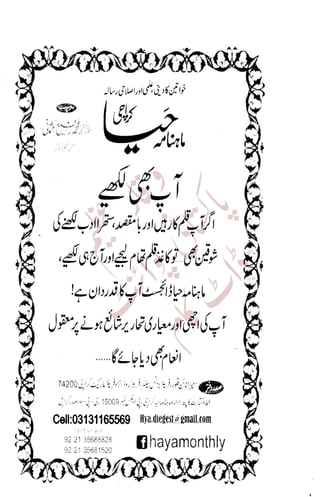 خواتین کا دینی، علمی اور اصلاحی رسالہ
ماہنامہ حیا کراچی
آپ بھی لکھیے
اگر آپ قلم کار ہیں اور بامقصد، ستھرا ادب لکھنے کی
شوقین بھی تو کاغذ قلم تھام لیجیے اور آج ہی لکھیے،
ماہنامہ حیا ڈائجسٹ آپ کا قدردان ہے!
آپ کی اچھی اور معیاری تحاریر شائع ہونے پر معقول
انعام بھی دیا جائے گا......
74200
15009
Cell:03131165569 Hya.diegest@gmail.com
92 21 35688828
92 21 35681520
f hayamonthly